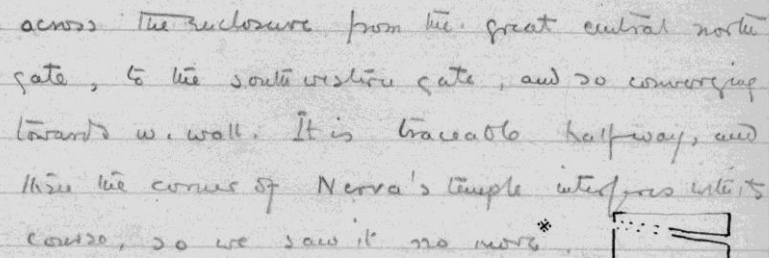 across the enclosure from the great central north
gate, to the south western gate, and so converging
towards w. wall. It is traceable halfway, and
then the corner of Nerva's temple interferes with its
course, so we saw it no more*.